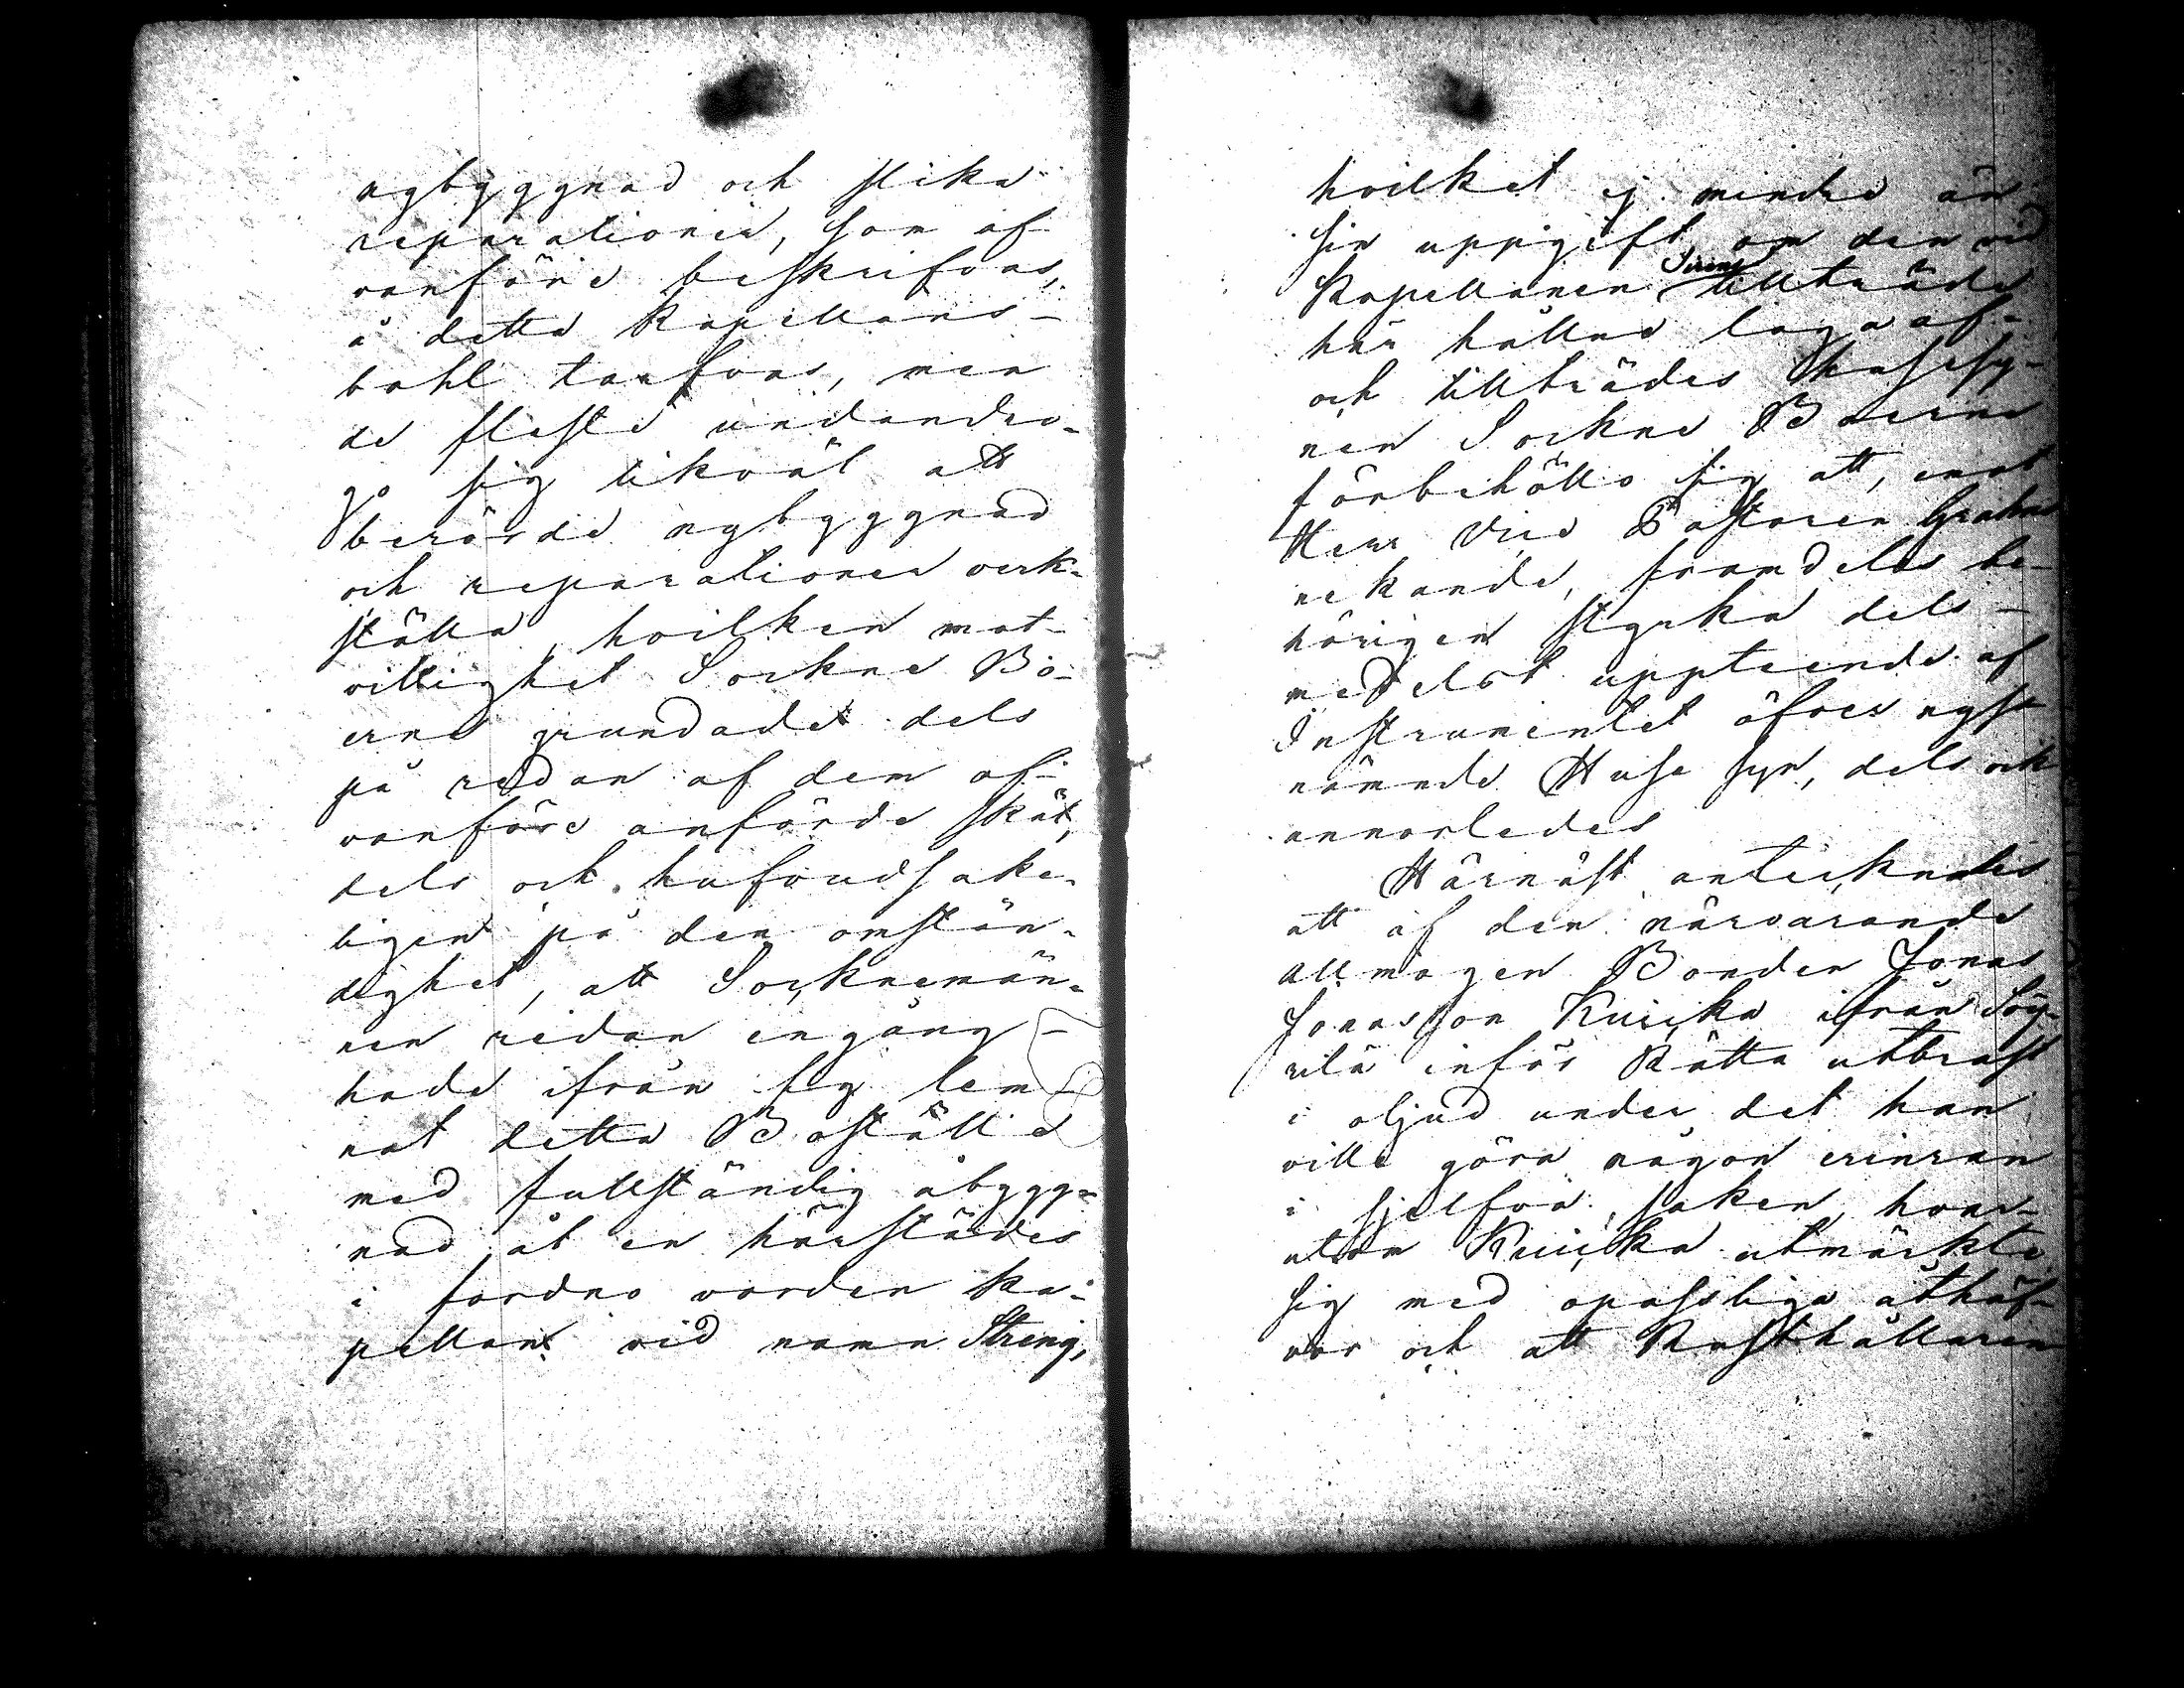 nybyggnad och slika
reparationer, som of-
vanföre beskrifvas,
å detta Kapellans-
bohl tarfvas, men
de fleste undandro-
go sig likväl att
berörde nybyggnad
och reparationer verk-
ställa, hvilken mot-
villighet Sockne Bö-
erne grundade dels
på redan af dem of-
vanföre anförde skäl,
dels och hufvudsake-
ligen på den omstän-
dighet, att Socknemän-
nen redan engång
hade ifrån sig lem-
nat detta Boställe
med fullständig åbygg-
nad åt en härstädes
i fordno varden Ka-
pellan vid namn Streng,
hvilket ej mindre än
sin uppgift, om den vid
Kapellanen Sirens tillträde
här hållne laga af-
och tillträdes Husesy-
nen Sockne Boerne
förbehöllo sig att, emot
Herr Vice Pastoren Grahns
nekande, framdeles be-
hörigen styrka dels
medelst uppteende af
Instrumentet öfver nyss-
nämnde Huse syn, dels och
annorledes
Härnäst antecknades
att af den närvarande
allmogen Bonden Jonas
Jonasson Kuicka ifrån Söy-
rilä inför Rätta utbrast
i oljud under det han
ville göra någon erinran
i sjelfva saken, hvar-
utom Kuicka utmärkte
sig med opassliga åthäf-
vor och att Rusthållaren